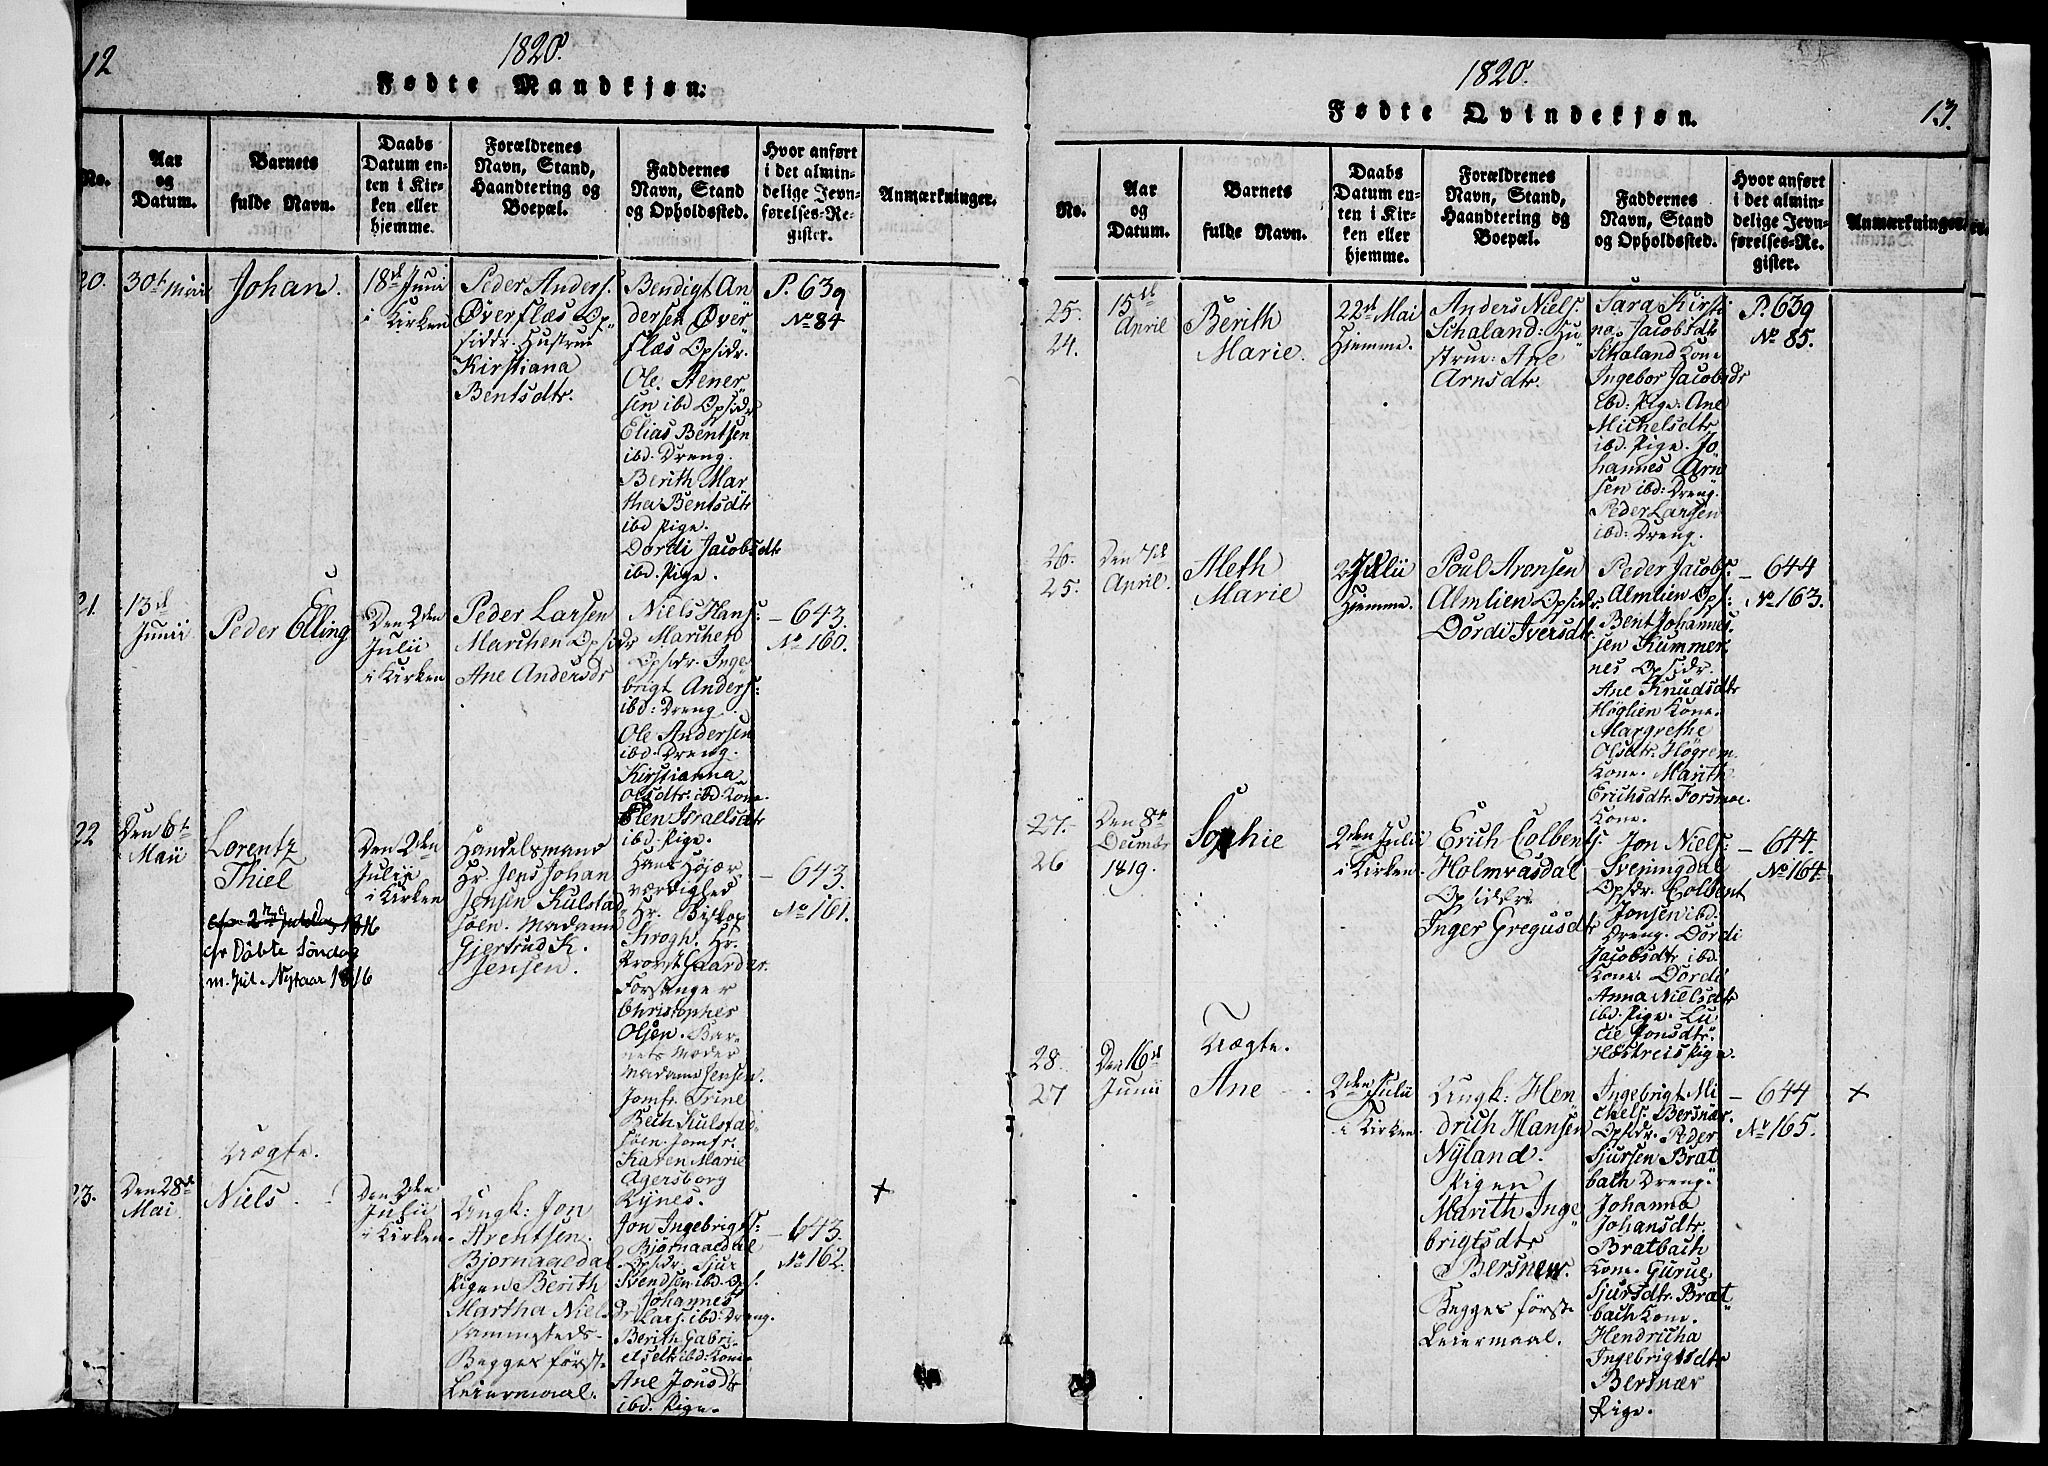 12
1820.
Fødte Mandkjøn.
No.
Aar
og
Datum.
Barnets
fulde Navn.
Daabs
Datum en-
ten i Kir-
ken eller
hjemme.
Forældrenes
Navn, Stand,
Haandtering og
Boepæl.
Faddernes
Navn, Stand
og Opholdssted.
Hvor anført
i det almin-
delige Jevn-
førelses-Re-
gister.
Anmærkninger.
20.
30t Mai
Johan.
18de Juni
i Kirken
Peder Anders.
Øverflæs Op
siddr. Hustrue
Kirstiana
Bentsdtr.
Bendigt An
dersen Øver
flæs Opsidr.
Ole Stener
sen ibd Opsidr
Elias Bentsen
ibd. Dreng.
Berith Mar
tha Bentsdtr
ibd Pige.
Dordi Jacobsdtr
ibd. Pige.
P. 639
No 84
21.
13de
Junii
Peder Elling
Den 2den
Julii
i Kirken
Peder Larsen
Marchen Opsidr
Ane Andersdr
Niels Hans:
Marchen
Opsidr. Inge
brigt Anders:
ibd: Dreng
Ole Andersen
ibd. Dreng.
Kirstianna
Olsdtr. ibd Kone.
Elen Israelsdtr
ibd. Pige.
- 643.
No 160.
22
Den 6te
Maii
Lorentz
Thiel
cfr Döbte Söndag
m. Jul. Nytaar 1816
Den 2den
Julii
i Kirken
Handelsmand
Hr. Jens Johan
Jensen Kulstad
søen. Madame
Gjertrud K.
Jensen.
Hans Højær
værdighed
Hr. Biskop
Krogh. Hr.
Provst Gaarder.
Forsanger
Christopher
Olsen. Bar
nets Moder
Madame Jensen.
Jomfr. Trine
Bech Kulstad
søen. Jomfr.
Karen Marie
Agersborg
Rynes.
- 643.
No 161.
23.
Den 28de
Mai
Uægte.
Niels
Den 2den
Julii
i Kirken
Ungk: Jon
Arentsen
Bjornaaedal
Pigen Berith
Martha Niels Dr
sammesteds.
Begges først
Leiermaal.
Jon Ingebrigts:
Bjørnaaedal
Opsidr. Sjur
Svendsen ibd. Ops.
Johannes
Lars. ibd Dreng.
Berith Gabri-
elsdtr ibd: Kone
Ane Jonsdtr
ibd. Pige.
- 643.
No 162.
+
1820.
13.
Fødte Qvindekjøn.
No.
Aar
og
Datum.
Barnets
fulde Navn.
Daabs
Datum en-
ten i Kir-
ken eller
hjemme.
Forældrenes
Navn, Stand,
Haandtering og
Boepæl.
Faddernes
Navn, Stand
og Opholdssted.
Hvor anført
i det almin-
delige Jevn-
førelses-Re-
gister.
Anmærkninger.
25.
24.
15de
April
Berith
Marie.
22de Mai
Hjemme.
Anders Niels.
Schaland: Hu
strue: Ane
Arnsdtr.
Sara Kirsti
na Jacobsdtr
Schaland Kone
Ingebor Jacobsdr
Ebd: Pige. Ane
Michelsdtr
ibd. Pige. Jo
hannes Arn
sen ibd: Dreng.
Peder Larsen
ibd: Dreng.
P. 639
No 85.
26.
25.
Den 7de
April.
Aleth
Marie
2 Julii
Hjemme.
Poul Aronsen
Almlien Opsidr
Dordi Iversdtr
Peder Jacobs.
Almlien Ops:
Bent Johannes
sen Kummer
nes Opsidr.
Ane Knudsdtr
Höglien Kone.
Margrethe
Olsdtr. Högrem
Kone. Marith
Erichsdtr. Forsmoe
Kone.
- 644
No 163.
27.
26
Den 8de
Decembr
1819.
Sophie
2den Julii
i Kirken
Erich Colbents.
Holmvasdal
Opsidder
Inger Gregusdtr
Jon Niels:
Sveningdal
Opsdr. Colbent
Jonsen ibd.
Dreng. Dordi
Jacobsdtr ibd.
Kone. Dordi
Anna Nielsdtr
ibd. Pige. Lu
cie Jonsdtr
Hæstreis Pige.
- 644.
No 164.
28.
27
Den 16de
Junii
Uægte.
Ane
2den Julii
i Kirken
Ungk: Hen
drich Hansen
Nyland.
Pigen
Marith Inge
brigtsdtr
Bersnew.
Begges først
Leiermaal.
Ingebrigt Mi
chels. Bersnær.
Opsidr. Peder
Sjursen Brat
bach Dreng.
Johanna
Johansdtr.
Bratbach
Kone. Gurue
Sjursdtr. Brat
bach Kone.
Hendricha
Ingebrigtsdtr
Bersnær
Pige.
- 644
No 165.
+